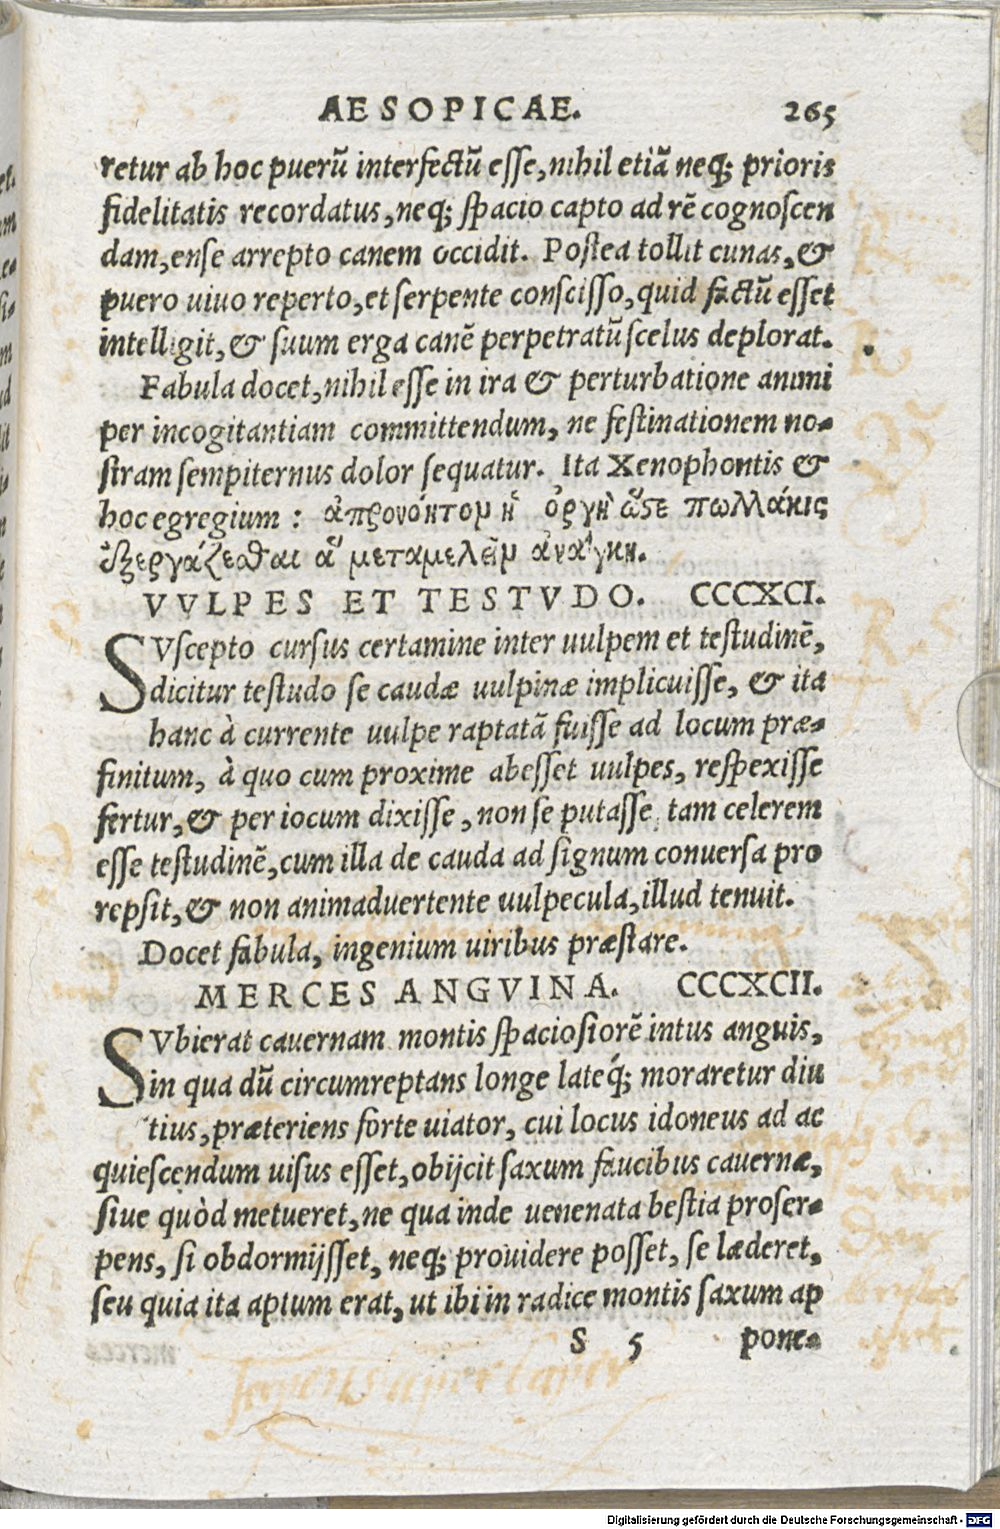 AESOPICAE. 265
retur ab hoc puerū interfectū esse, nihil etiā neq; prioris
fidelitatis recordatus, neq; spacio capto ad rē cognoscen
dam, ense arrepto canem occidit. Postea tollit cunas, &
puero uiuo reperto, et serpente conscisso, quid factū esset
intelligit, & suum erga canē perpetratū scelus deplorat.
Fabula docet, nihil esse in ira & perturbatione animi
per incogitantiam committendum, ne festinationem no-
stram sempiternus dolor sequatur. Ita Xenophontis &
hoc egregium: ἀπρονόητομ ἡ ὀργὴ ὥστε πολλάκις
ἐξεργάζεσθαι ἃ μεταμελεῖμ ἀνάγκη.
VVLPES ET TESTVDO. CCCXCI.
SVscepto cursus certamine inter uulpem et testudinē,
dicitur testudo se caudæ uulpinæ implicuisse, & ita
hanc à currente uulpe raptatā fuisse ad locum præ-
finitum, à quo cum proxime abesset uulpes, respexisse
fertur, & per iocum dixisse, non se putasse tam celerem
esse testudinē, cum illa de cauda ad signum conuersa pro
repsit, & non animaduertente uulpecula, illud tenuit.
Docet fabula, ingenium uiribus præstare.
MERCES ANGVINA. CCCXCII.
SVbierat cauernam montis spaciosiorē intus anguis,
in qua dū circumreptans longe lateq́; moraretur diu
tius, præteriens forte uiator, cui locus idoneus ad ac
quiescendum uisus esset, obijcit saxum faucibus cauernæ,
siue quòd metueret, ne qua inde uenenata bestia proser-
pens, si obdormijsset, neq; prouidere posset, se læderet,
seu quia ita aptum erat, ut ibi in radice montis saxum ap
S 5 pone-
Digitalisierung gefördert durch die Deutsche Forschungsgemeinschaft - DFG